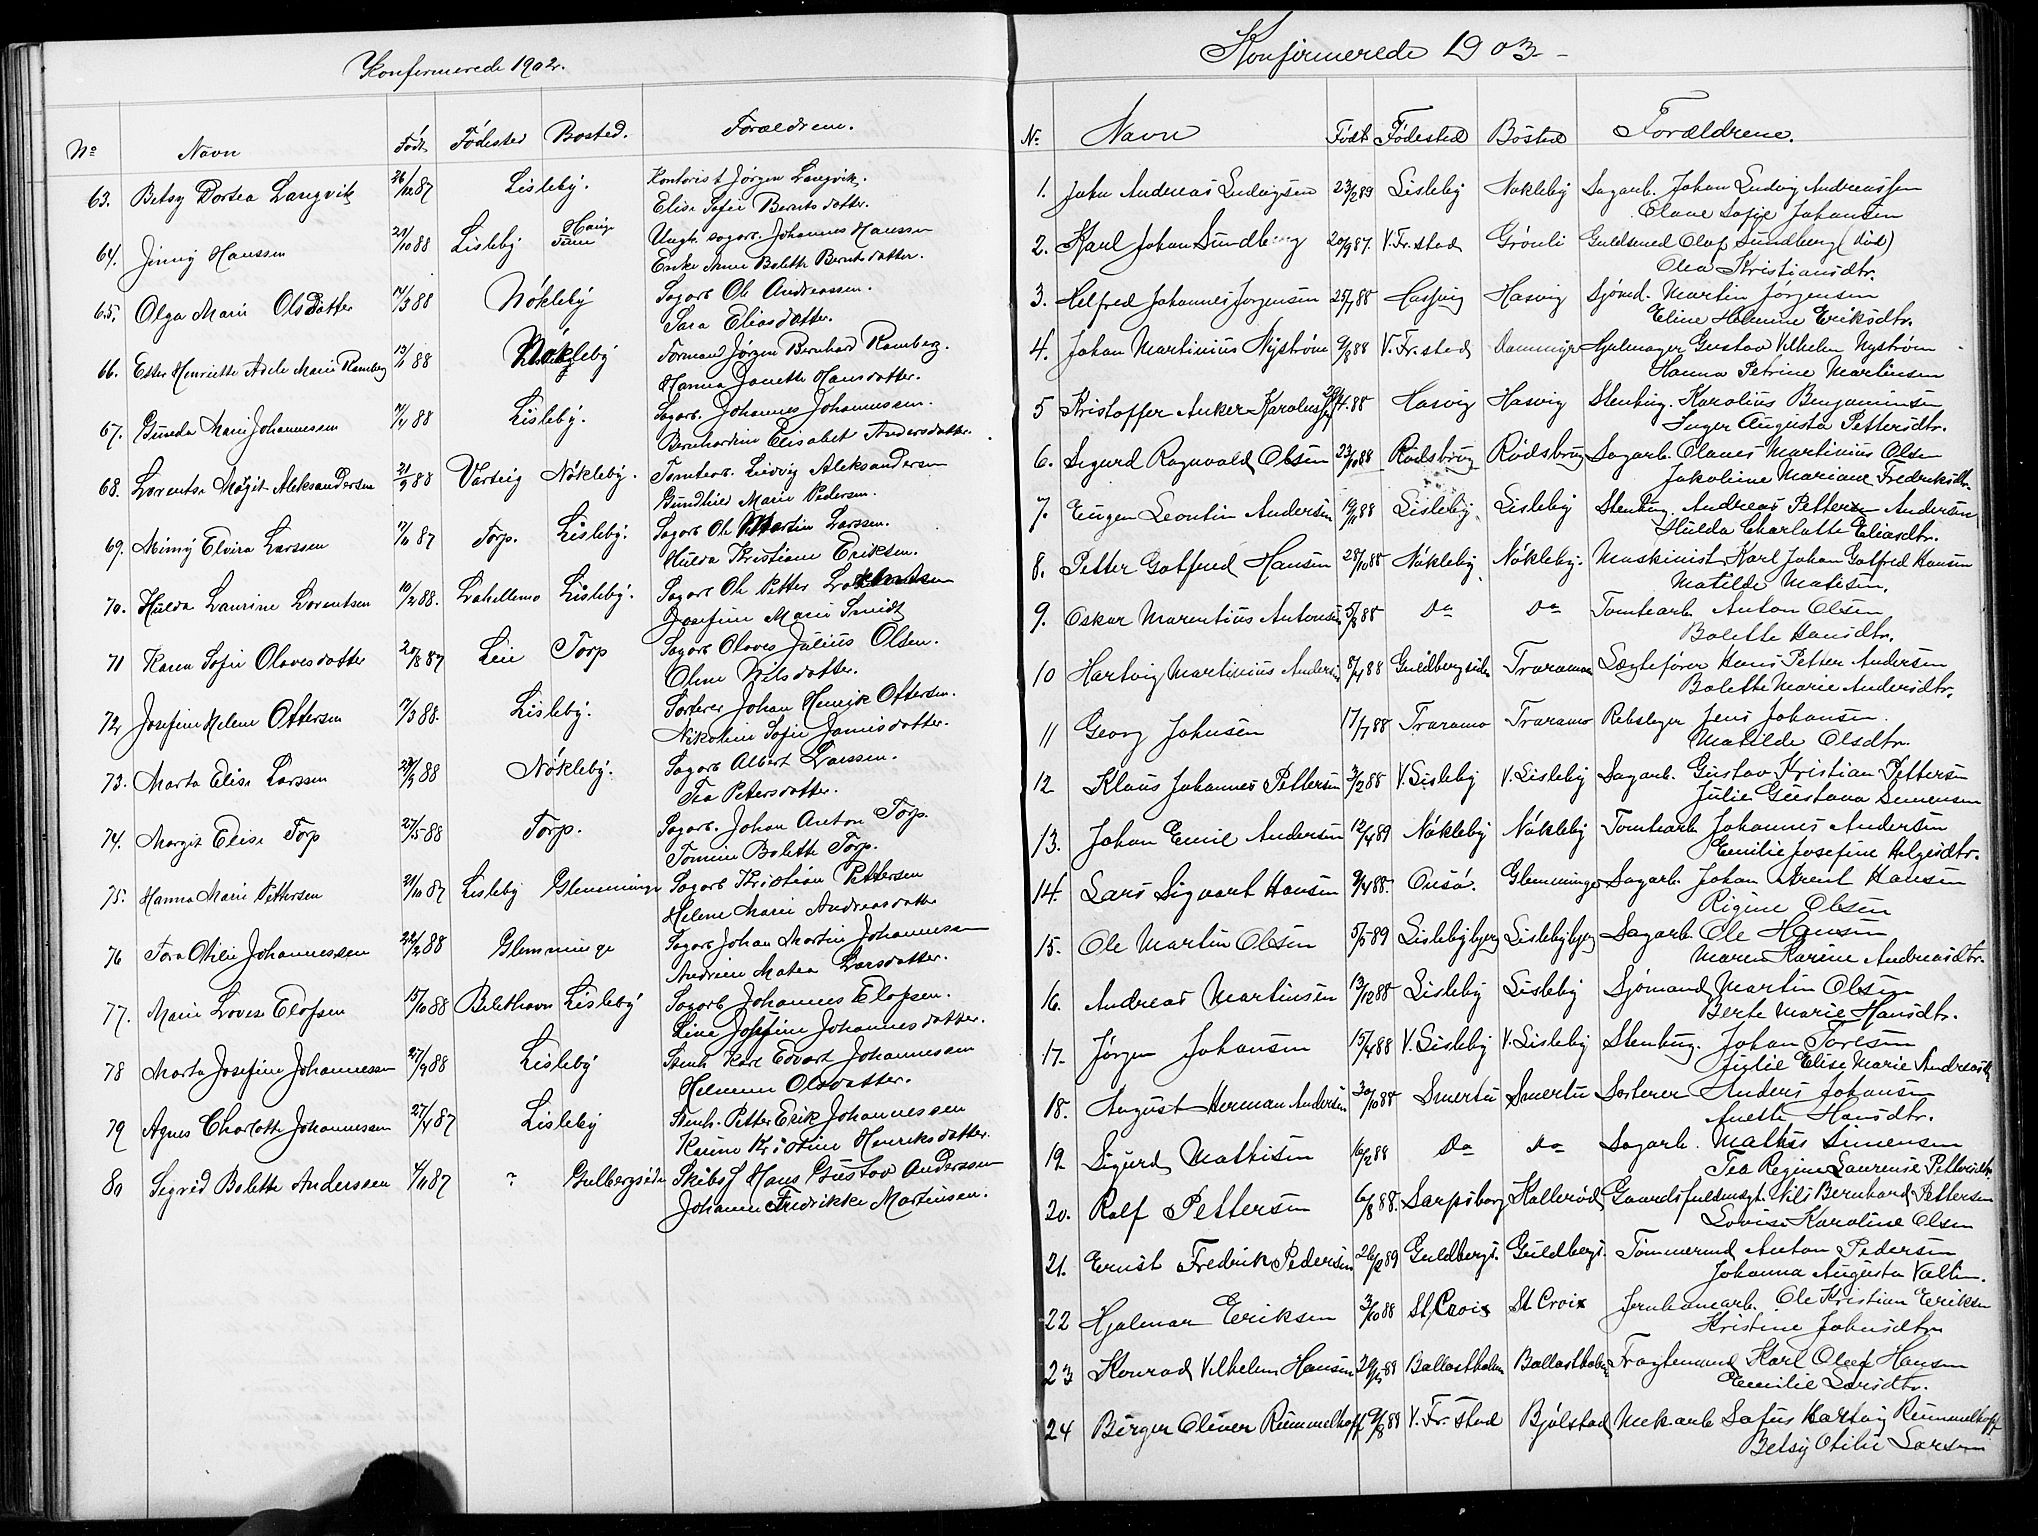 Konfirmerede 1902.
No Navn Født Fødested Bosted. Forældrene.
63. Betsy Dortea Langvik 26/12 87 Lisleby. Kontorist Jørgen Langvik.
Elise Sofie Berntsdatter.
64. Jenny Hanssen 29/10 88 Lisleby Ungk. sagarb. Johannes Hanssen
Enke Anne Bolette Berntsdatter.
65. Olga Marie Olsdatter 7/3 88 Nökleby Sagarb Ole Andreassen.
Sara Eliasdatter.
66. Ester Henriette Adele Marie Ramberg 13/1 88 Nökleby Formand Jørgen Bernhard Ramberg.
Hanna Janette Hansdatter.
67. Gunda Marie Johannessen 7/4 88 Lisleby. Sagarb. Johannes Johannessen.
Bernhardine Elisabet Andersdatter.
68. Lorentse Magit Aleksandersen 21/2 88 Varteig Nökleby. Tomterb. Ludvig Aleksandersen
Gundhild Marie Pedersen.
69. Mimmy Elvira Larssen 7/11 87 Torp. Lisleby. Sagarb Ole Martin Larssen.
Hulda Kristiane Eriksen.
70. Hulda Laurine Lorentsen 10/2 88. Lahellemo Lisleby. Sagarb Ole Petter Lorentsen
Josefine Marie Smidt
71 Karen Sofie Olavesdatter 20/8 87 Leie Torp Sagarb Olaves Julius Olsen.
Oline Nilsdatter.
72 Josefine Helene Ottersen 7/3 88. Lisleby. Sorterer Johan Henrik Ottersen.
Nikoline Sofie Jonnisdatter.
73. Marta Elise Larssen 23/2 88 Nökleby. Sagarb Albert Larssen.
Tea Petersdatter.
74. Margit Elise Torp 27/5 88 Torp. Sagarb. Johan Anton Torp.
Tomine Bolette Torp.
75. Hanna Marie Pettersen 21/10 87 Lisleby Glemminge Sagarb Kristian Pettersen
Helene Marie Andreasdatter
76 Tora Otilie Johannessen 22/2 88 Glemminge Sagarb Johan Martin Johannessen
Andrine Matea Larsdatter.
77. Marie Lovise Elofsen 15/10 88 Lisleby Sagarb Johannes Elofsen.
Line Josefine Johannesdatter.
78 Marta Josefine Johannessen 27/9 88 Lisleby Stenh. Karl Edvart Johannessen
Helmine Olsdatter.
79 Agnes Charlotte Johannessen 27/4 87 Lisleby Stenh. Petter Erik Johannessen
Karine Kristine Henriksdatter.
80 Sigrid Bolette Anderssen 4/10 87 ? Gulbergside Skibsf Hans Gustav Anderssen
Johanne Fredrikke Martinsen.
Konfirmerede 1903.
No Navn Født Fødested Bosted Forældrene.
1. John Andreas Ludvigsen 23/2 89 Lisleby Nökleby Sagarb. Johan Ludvig Andreassen
Olave Sofje Johansen
2. Karl Johan Sundberg 20/9 87. V. Fr.stad Grönli Guldsmed Olaf Sundberg (död)
Olea Kristiansdtr.
3. Helfred Johannes Jørgensen 25/7 88 Hasvig Hasvig Sjömd. Martin Jørgensen
Eline Helmine Eriksdtr.
4. Johan Martinius Nyström 9/8 88 V. Fr.stad Dammyr Hjulmager Gustav Vilhelm Nyström
Hanna Petrine Martinsen
5 Kristoffer Anker Karoliussen 29/4 88 Hasvig Hasvig Stenhug. Karolius Benjaminsen
Inger Augusta Pettersdtr.
6. Sigurd Ragnvald Olsen 23/10 88 Rödsbrug Rödsbrug Sagarb. Olaves Martinius Olsen
Jakoline Mariane Fredriksdtr.
7. Eugen Leontin Andersen 12/11 88 Lisleby Lisleby Stenhug. Andreas Pettersen Andersen
Hulda Charlotte Eliasdtr.
8. Petter Gotfred Hansen 28/10 88 Nökleby Nökleby. Maskinist Karl Johan Gotfred Hansen
Matilde Matisen.
9. Oskar Marentius Antonsen 5/8 88 Do Do Tomtearb Anton Olsen
Bolette Hansdtr.
10 Hartvig Martinius Andersen 8/4 88 Guldbergsiden Traramo Lægtefører Hans Petter Andersen
Bolette Marie Andersdtr.
11 Georg Johnsen 17/7 88 Traramo Traramo Rebslager Jens Johansen.
Matilde Olsdtr.
12 Klaus Johannes Pettersen 3/2 88 V. Lisleby V. Lisleby Sagarb. Gustav Kristian Pettersen
Julie Gustava Simensen
13. Johan Emil Andersen 12/4 89 Nökleby Nökleby Tomtearb Johannes Andersen
Emilie Josefine Helgesdtr.
14. Lars Sigvart Hansen 9/4 88. Onsö. Glemminge Sagarb. Johan Arent Hansen
Rigine Olsen
15. Ole Martin Olsen 5/5 89 Lislebybjerg Lislebybjerg Sagarb. Ole Hansen
Maren Karine Andreasdtr.
16. Andreas Martinsen 13/12 88 Lisleby Lisleby Sjömand Martin Olsen
Berte Marie Hansdtr.
17. Jørgen Johansen 15/4 88 V. Lisleby V. Lisleby Stenhug. Johan Toresen
Julie Elise Marie Andreasdtr
18. August Herman Andersen 30/10 88 Smertu Smertu Sorterer Anders Johansen
Anette Hansdtr.
19. Sigurd Mathisen 16/2 88 Do Do Sagarb. Mathis Simensen
Tea Regine Laurense Pettersdtr.
20. Rolf Pettersen 6/8 88. Sarpsborg Kallerød Gaardsfuldmægt. Nils Bernhard Pettersen
Lovise Karoline Olsen
21. Ernst Fredrik Pedersen 26/2 89 Guldbergs. Guldbergs. Tömmermd Anton Pedersen
Johanna Augusta Vallin.
22 Hjalmar Eriksen 3/10 88 St. Croix St. Croix Jernbanearb. Ole Kristian Eriksen
Kristine Johnsdtr
23 Konrad Vilhelm Hansen 29/1 89 Ballastholm Ballastholm Fragtemand Karl Oluf Hansen
Emilie Larsdtr.
24 Birger Oliver Rummelhoff 9/8 88 V. Fr.stad Bjölstad Mek.arb Sofus Hartvig Rummelhoff
Betsy Otilie Larsen